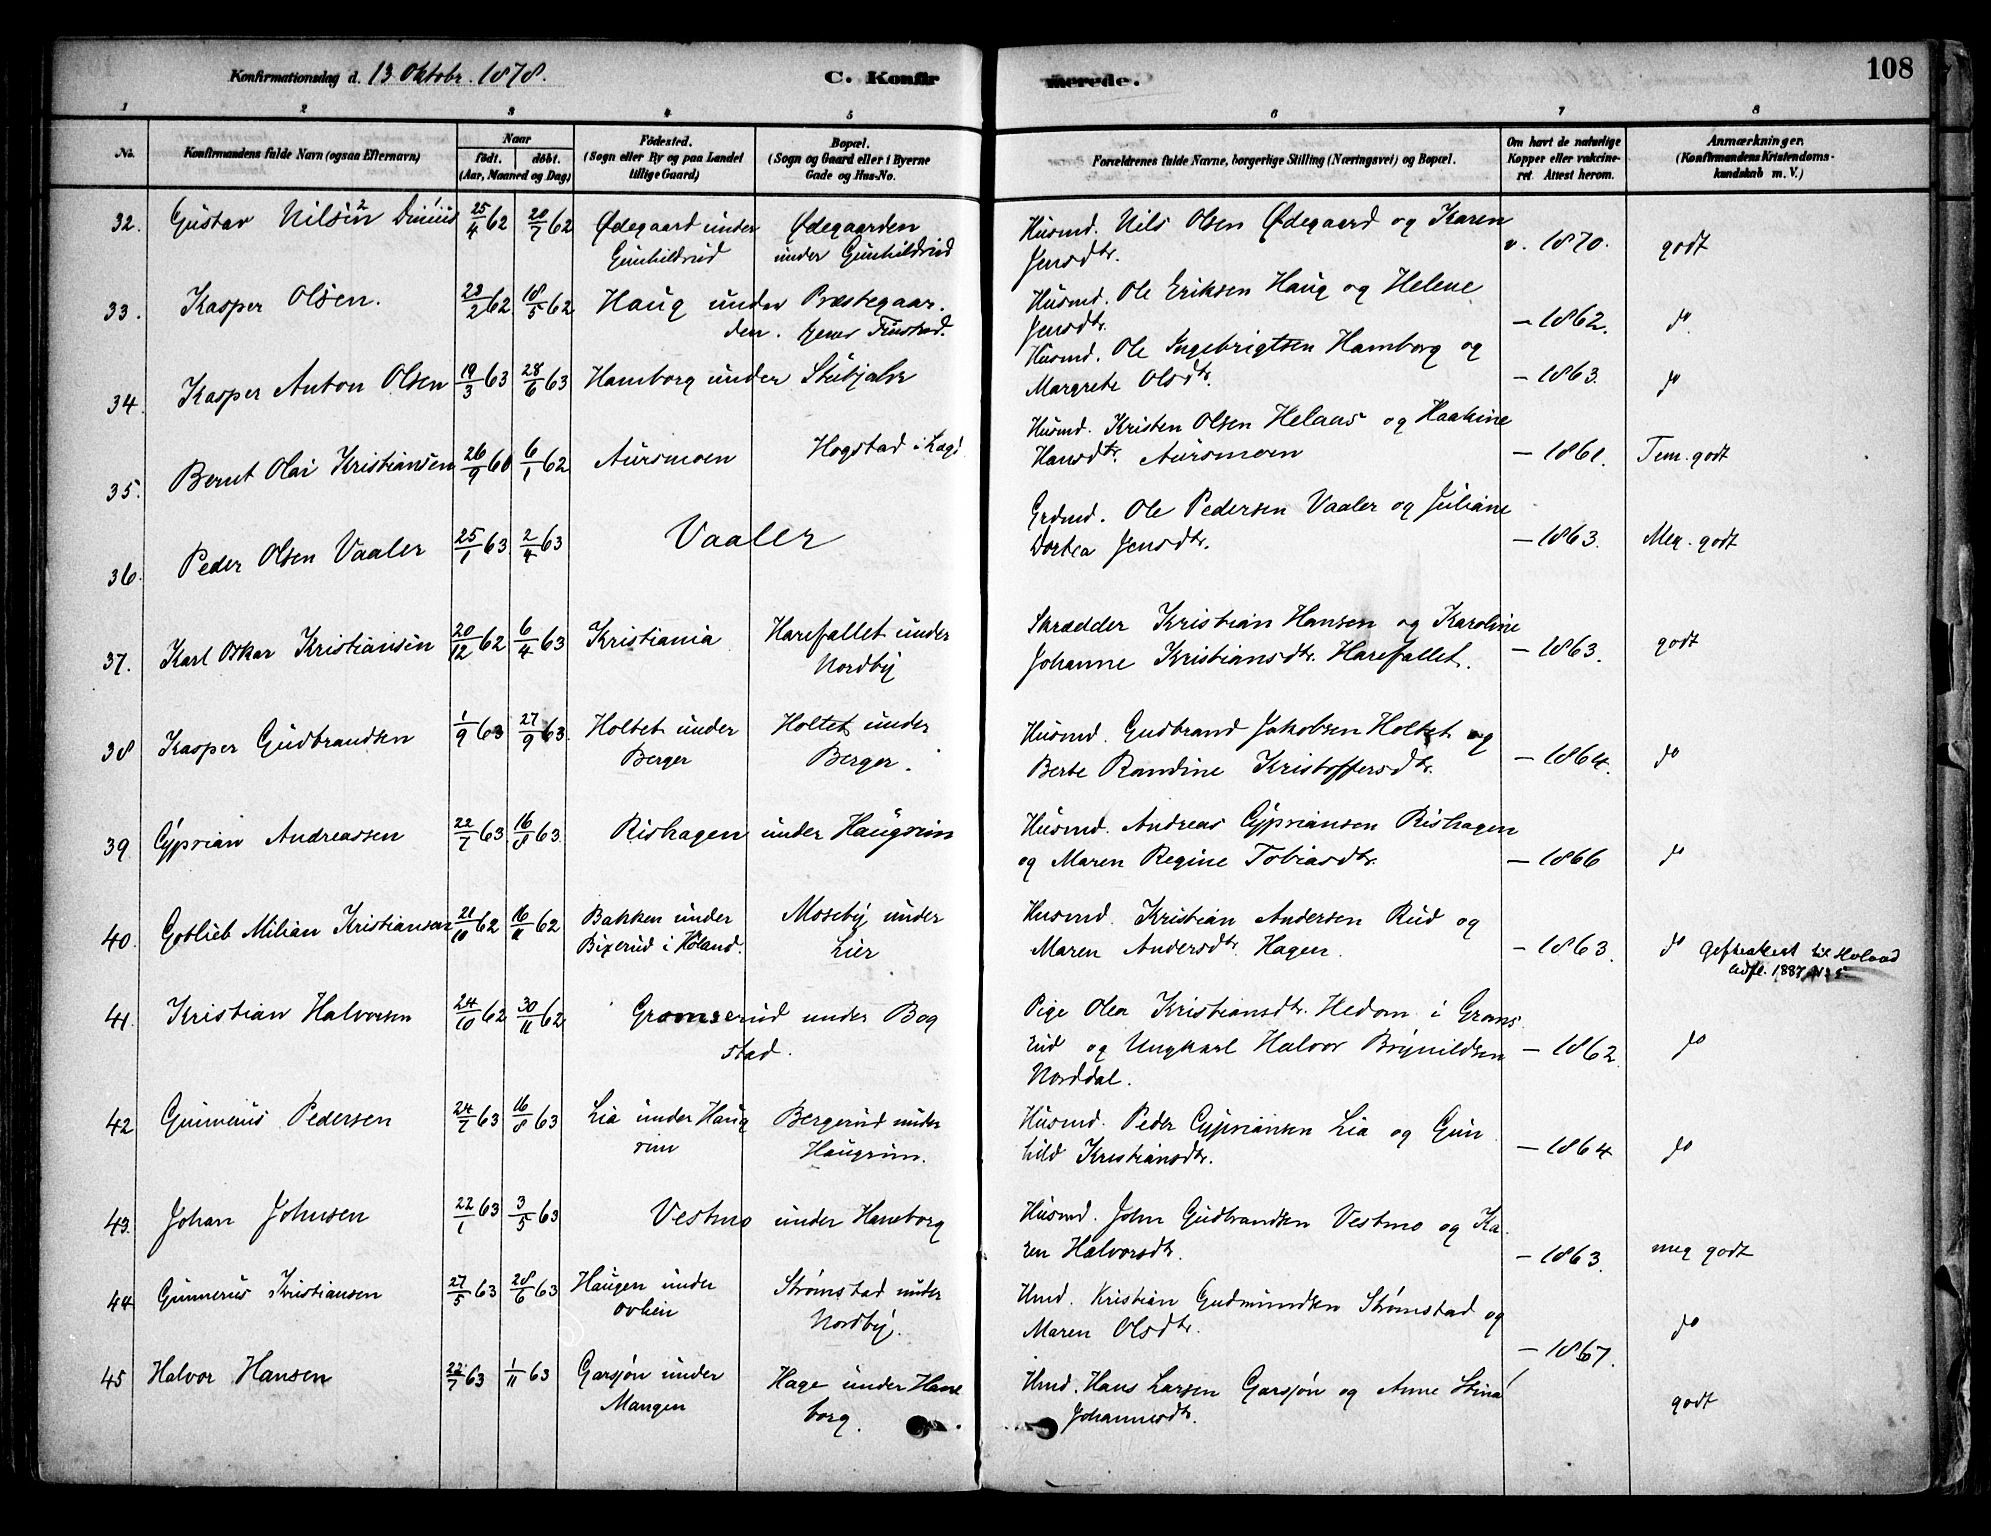 108
Konfirmationsdag d. 13 Oktobr. 1878. C. Konfirmerede.
1 2 3 4 5 6 7 8
No. Konfirmandens fulde Navn (ogsaa Efternavn) Naar født. døbt. (Aar, Maaned og Dag) Fødested. (Sogn eller By og paa Landet tillige Gaard) Bopæl. (Sogn og Gaard eller i Byerne Gade og Hus-No. Forældrenes fulde Navne, borgerlige Stilling (Næringsvei) og Bopæl. Om havt de naturlige Kopper eller vakcineret. Attest herom. Anmærkninger. (Konfirmandens Kristendomskundskab m. V.)
32. Gustav Nilsen 25/4 62 20/7 62 Ødegaard under Ødegaarden Husmd. Nils Olsen Ødegaard og Karen v. 1870. godt
Gunhildrud under Gunhildrud Jensdtr.
33. Kasper Olsen. 23/2 62 18/5 62 Haug under Præstegaar Husmd. Ole Eriksen Haug og Helene — 1862. do
den. Jensdtr.
34. Kasper Anton Olsen 19/3 63 28/6 63 Hamborg under Husmd. Ole Ingebrigtsen Hamborg og — 1863. do
Margrete Olsdtr.
35. Bernt Olai Kristiansen 26/9 60 6/1 62 Aursmoen Hogstad i Husmd. Kristen Olsen Helaas og Haakine — 1861. Tem. godt
Hansdtr. Aursmoen
36. Peder Olsen Vaaler 25/1 63 2/4 63 Vaaler Grdmd. Ole Pedersen Vaaler og Juliane — 1863. Meg. godt
Dortea Jensdtr.
37. Karl Oskar Kristiansen 20/12 62 6/4 63 Kristiania Harefallet under Skrædder Kristian Hansen og Karoline — 1863. godt
Nordby Johanne Kristiansdtr. Harefallet.
38 Kasper Gudbrandsen 1/9 63 27/9 63. Holtet under Holtet under Husmd. Gudbrand Jakobsen Holtet og — 1864. do
Berger Berger. Berte Randine Kristoffersdtr.
39. Cyprian Andreassen 22/7 63 16/8 63. Rishagen under Haugrim Husmd. Andreas Cypriansen Rishagen — 1866 do
og Maren Regine Tobiasdtr.
40. Gotlieb Milian Kristiansen 21/10 62 16/11 62 Bakken under Moseby under Husmd. Kristian Andersen Rud og — 1863. do
Bixerud i Høland. Lier Maren Andersdtr. Hagen. til Høland
1887 No 5
41. Kristian Halvorsen 24/10 62 30/11 62 Gromserud under Bog Pige Olea Kristiansdtr. Hedom i Groms — 1862. do
stad. rud og Ungkarl Halvor Brynildsen
Norddal.
42 Gunnerius Pedersen 24/7 63 16/8 63 Lia under Haug Bergerud under Husmd. Peder Cypriansen Lia og Gun — 1864 do
rim Haugrim. hild Kristiansdtr.
43. Johan Johnsen 22/1 63 3/5 63 Vestmo under Haneborg Husmd. John Gudbrandsen Vestmo og Ka — 1863. meg godt
ren Halvorsdtr.
44. Gunnerus Kristiansen 27/5 63 28/6 63 Haugen under Strømstad under Hmd. Kristian Gudmundsen Strømstad og — 1867. do
ovlien Nordby. Maren Olsdtr.
45 Halvor Hansen 22/7 63 1/11 63 Garsjøn under Hage under Hane Hmd. Hans Larsen Garsjøn og Anne Stina godt
Mangen borg. Johannesdtr.